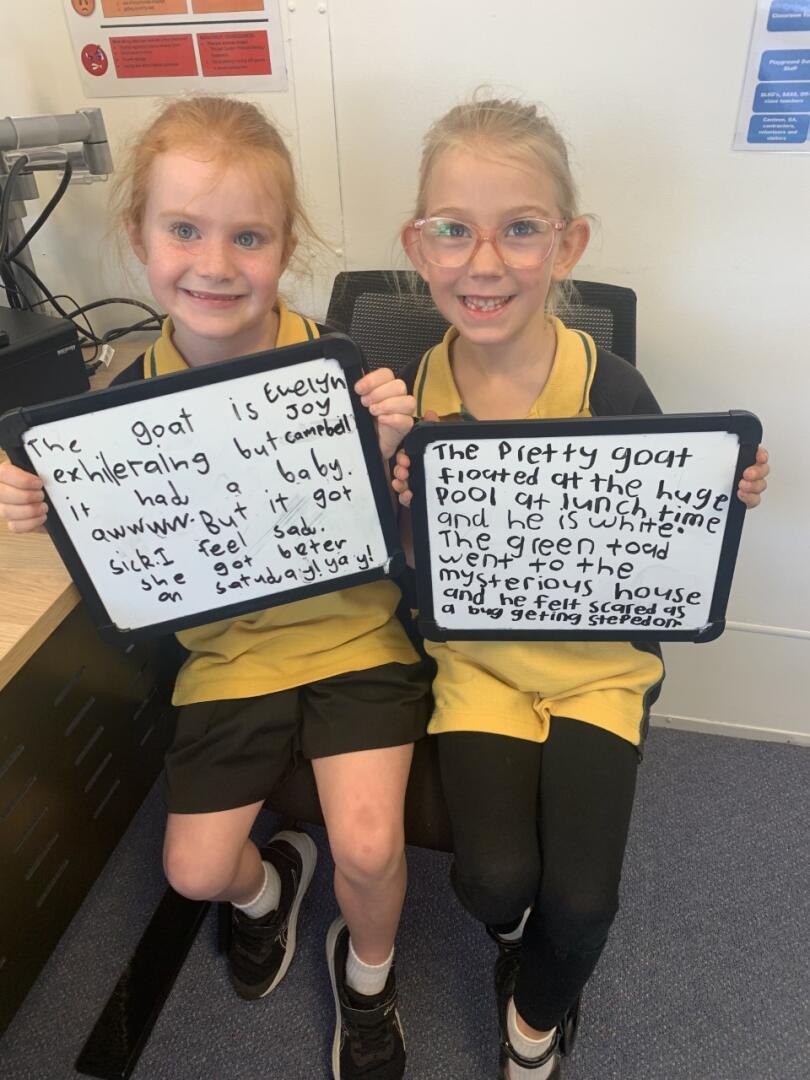 Classroom
Playground Duty
Staff
contractors,
volunteers and
visitors
The goat is Evelyn
JOY
exhileraing but campbell
it had a baby.
awwww. But it got
sick. I feel sad.
she got beter
on satuday! yay!
The Pretty goat
floated at the huge
Pool at lunch time
and he is white.
The green toad
went to the
mysterious house
and he felt scared as
a bug geting stepedon.